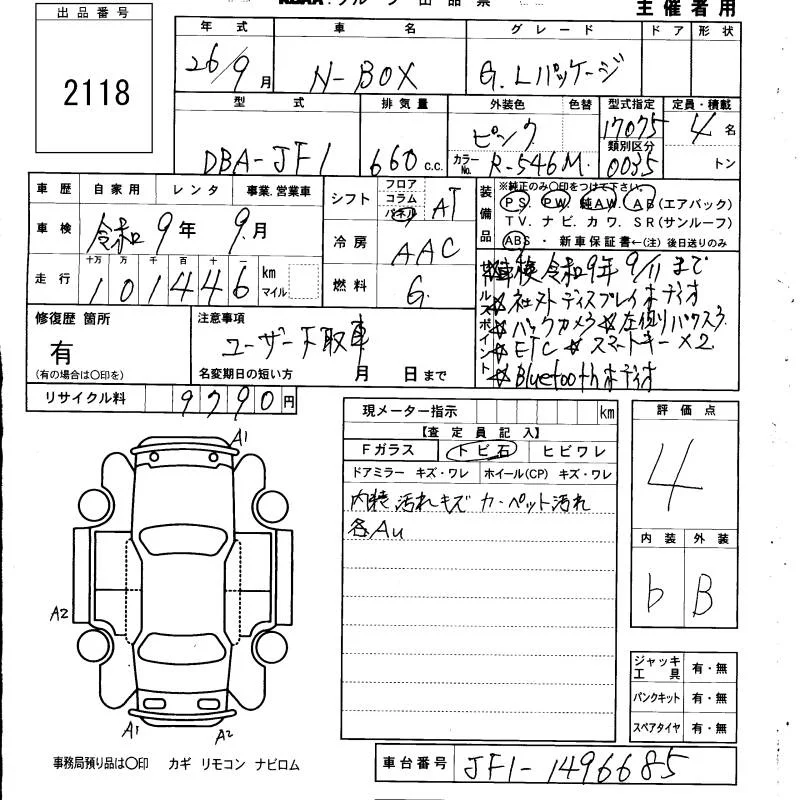 出品票
主催者用
出品番号
2118
年式
26/9月
車名
N-BOX
グレード
G.Lパッケージ
ドア 形状
型式
DBA-JF1
排気量
660 c.c.
外装色 色替
ピンク
カラーNo. R-546M.
型式指定
17075
類別区分
0035
定員・積載
4名
トン
車歴 自家用 レンタ 事業.営業車
車検 令和9年 9月
走行 十万 万 千 百 十 一
101446 km
マイル
シフト フロア コラム パネル AT
冷房 AAC
燃料 G.
装備品
※純正のみ〇印をつけて下さい。
PS. PW. 純AW. AB(エアバッグ)
TV. ナビ. カワ. SR(サンルーフ)
ABS・新車保証書←(注)後日送りのみ
セールスポイント
車検 令和9年 9/11まで
☆社外ディスプレイオーディオ
☆バックカメラ ☆左側パワスラ
☆ETC ☆スマートキー×2
☆Bluetoothオーディオ
修復歴 箇所
有
(有の場合は〇印を)
注意事項
ユーザー下取車
名変期日の短い方 月 日まで
リサイクル料 9790円
現メーター指示 km
【査定員記入】
Fガラス トビ石 ヒビワレ
ドアミラー キズ・ワレ ホイール(CP) キズ・ワレ
内装汚れキズ カーペット汚れ
各Au
評価点
4
内装 外装
b B
A1
A2
A1
A2
ジャッキ工具 有・無
パンクキット 有・無
スペアタイヤ 有・無
事務局預り品は〇印 カギ リモコン ナビロム
車台番号 JF1-1496685